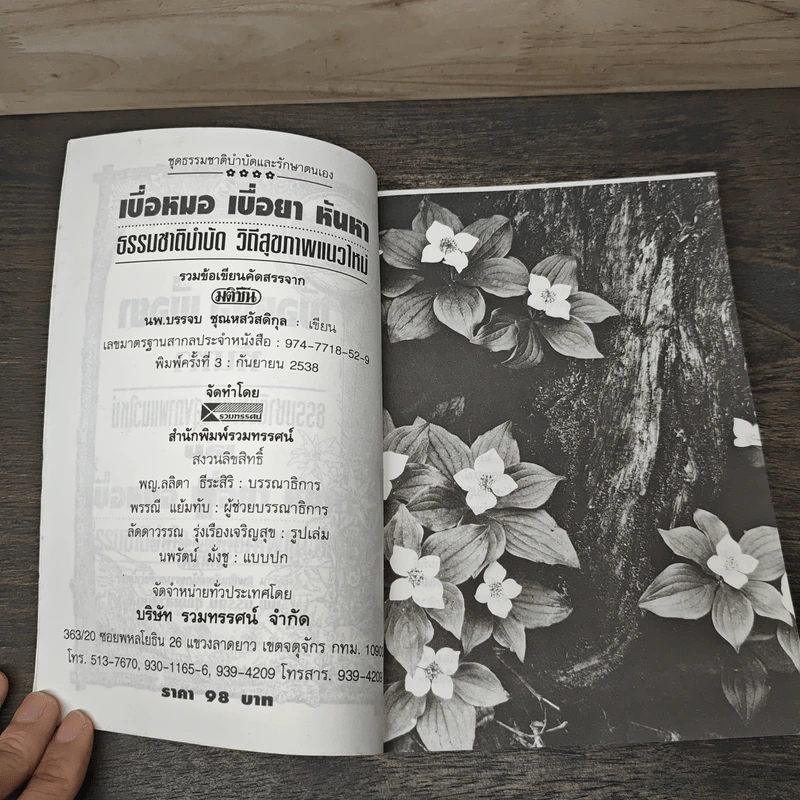 ชุดธรรมชาติบำบัดและรักษาตนเอง
เบื่อหมอ เบื่อยา หันหา
ธรรมชาติบำบัด วิถีสุขภาพแนวใหม่
รวมข้อเขียนคัดสรรจาก
มติชน
นพ.บรรจบ ชุณหสวัสดิกุล : เขียน
เลขมาตรฐานสากลประจำหนังสือ : 974-7718-52-9
พิมพ์ครั้งที่ 3 : กันยายน 2538
จัดทำโดย
รวมทรรศน์
สำนักพิมพ์รวมทรรศน์
สงวนลิขสิทธิ์
พญ.ลลิตา ธีระสิริ : บรรณาธิการ
พรรณี แย้มทับ : ผู้ช่วยบรรณาธิการ
ลัดดาวรรณ รุ่งเรืองเจริญสุข : รูปเล่ม
นพรัตน์ มั่งชู : แบบปก
จัดจำหน่ายทั่วประเทศโดย
บริษัท รวมทรรศน์ จำกัด
363/20 ซอยพหลโยธิน 26 แขวงลาดยาว เขตจตุจักร กทม. 10900
โทร. 513-7670, 930-1165-6, 939-4209 โทรสาร. 939-4209
ราคา 98 บาท